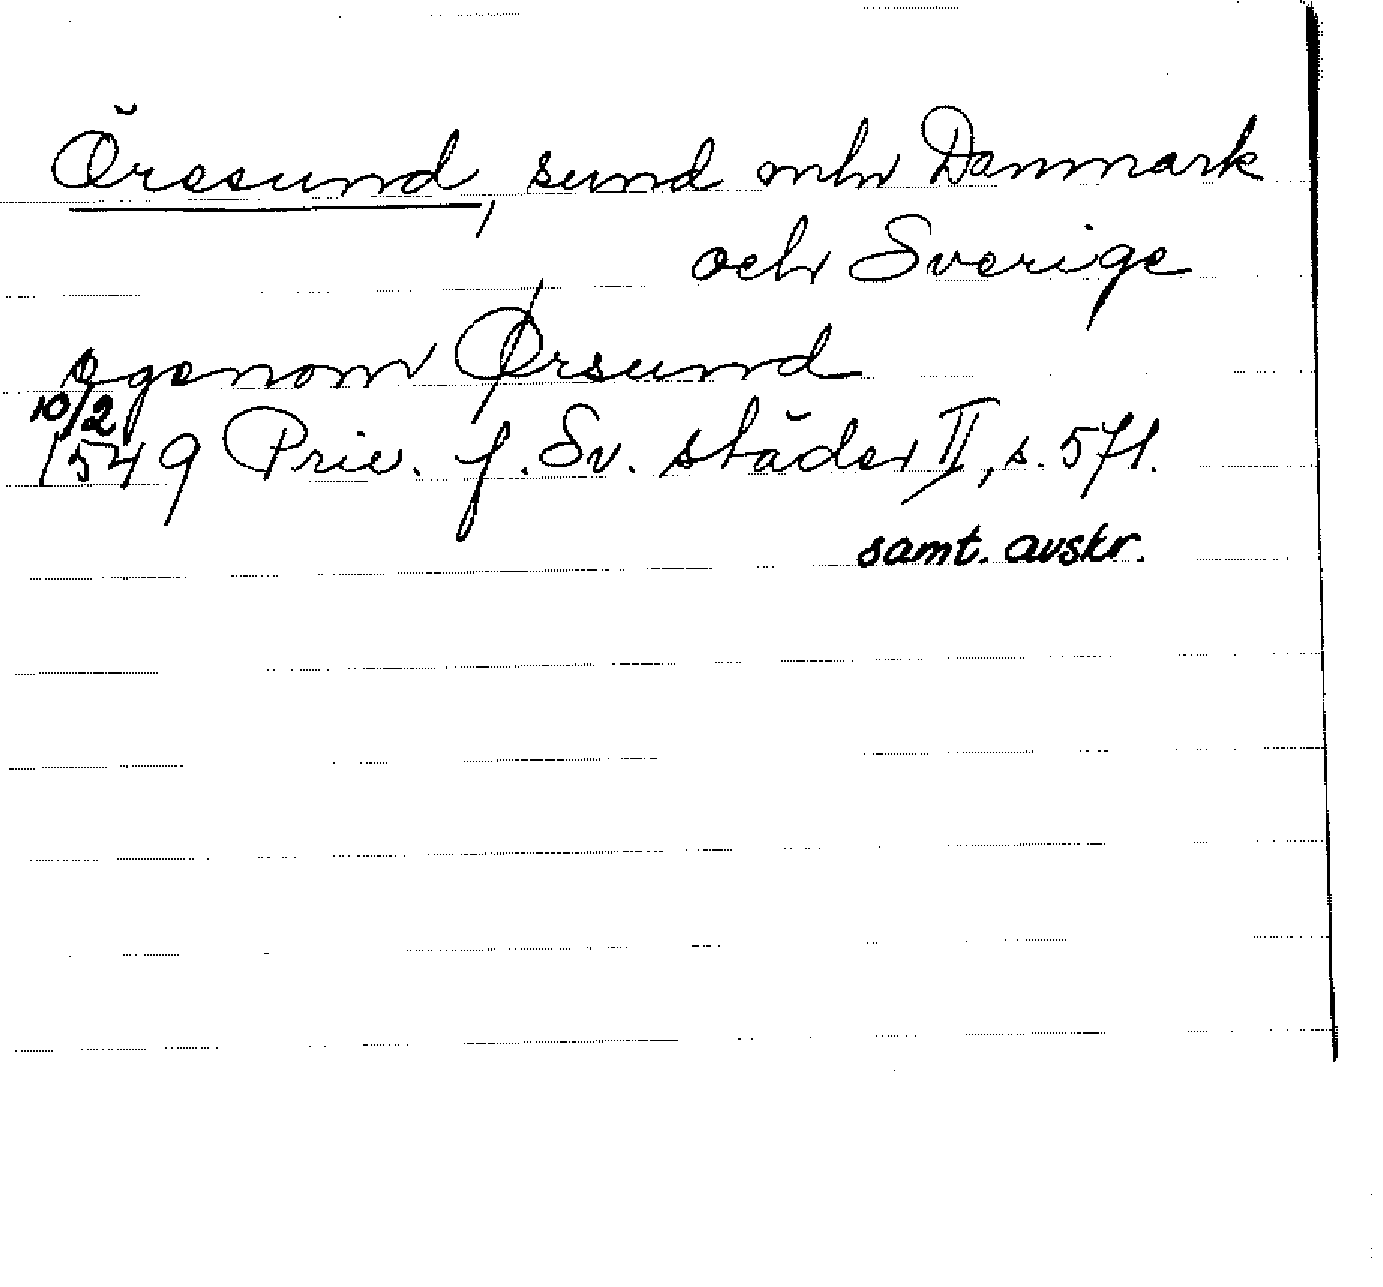 Öresund, sund mlm Danmark
och Sverige
egenom Ørsund
10/2
1549 Priv. f. Sv. städer II, s. 571.
samt. avskr.